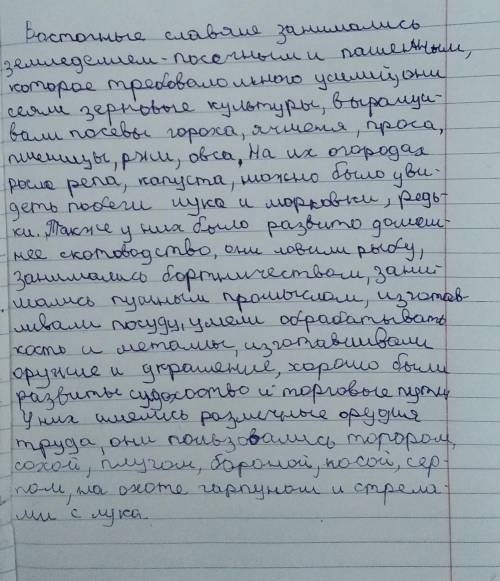 Восточные славяне занимались
земледелием-посечным и пашенным,
которое требовало много усилий, они
сеяли зерновые культуры, выращи-
вали посевы гороха, ячменя, проса,
пшеницы, ржи, овса, На их огородах
росла репа, капуста, можно было уви-
деть побеги лука и морковки, редь-
ки. Также у них было развито домаш-
нее скотоводство, они ловили рыбу,
занимались бортничеством, зани-
мались пушным промыслом, изготав-
ливали посуду, умели обрабатывать
кость и металлы, изготавливали
оружие и украшение, хорошо были
развиты судоходство и торговые пути
У них имелись различные орудия
труда, они пользовались топором,
сохой, плугом, бороной, косой, сер-
пом, на охоте гарпуном и стрела-
ми с лука.